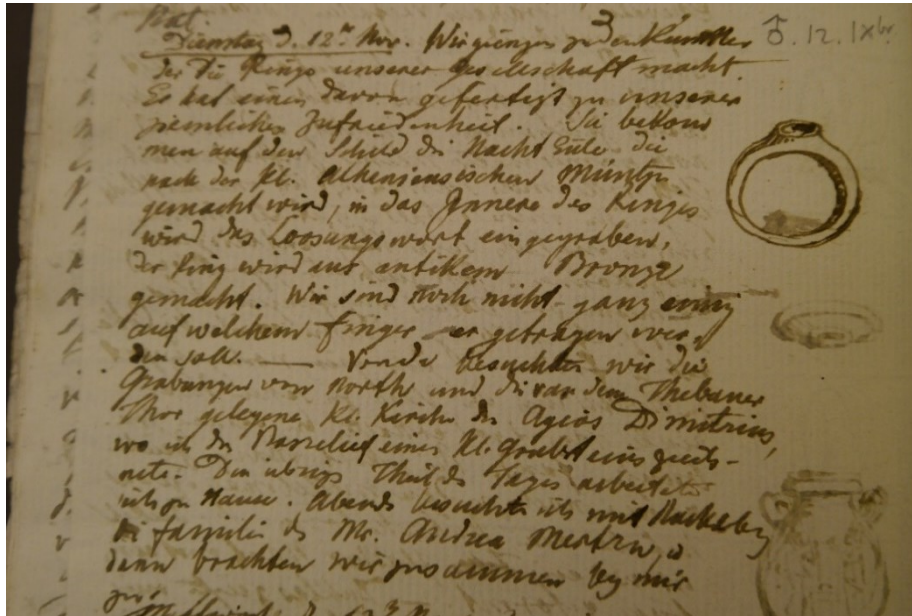 hat.
Dienstag d. 12ten Nov. Wir giengen zu dem Künstler
der die Ringe unserer Gesellschaft macht.
Er hat einen davon gefertigt zu unserer
ziemlichen Zufriedenheit. Sie bekom
men auf den Schild die Nacht Eule die
nach der kl. Atheniensischen Müntze
gemacht wird, in das Innere des Ringes
wird das Loosungswort eingegraben,
der Ring wird aus antikem Bronze
gemacht. Wir sind noch nicht ganz einig
auf welchem Finger er getragen wer,
den soll. — besuchten wir die
Grabungen von North und die vor dem Thebaner
Thor gelegene kl. Kirche des Agios Dimitrius,
wo ich das Basrelief eines kl. Grabsteins zeich-
nete. Den übrigen Theil des Tages arbeitete
ich zu Hause. Abends besuchte ich mit
die Familie des Mr. Andrea u
dann brachten wir zusammen bey mir
zu.
♂. 12. IXbr.